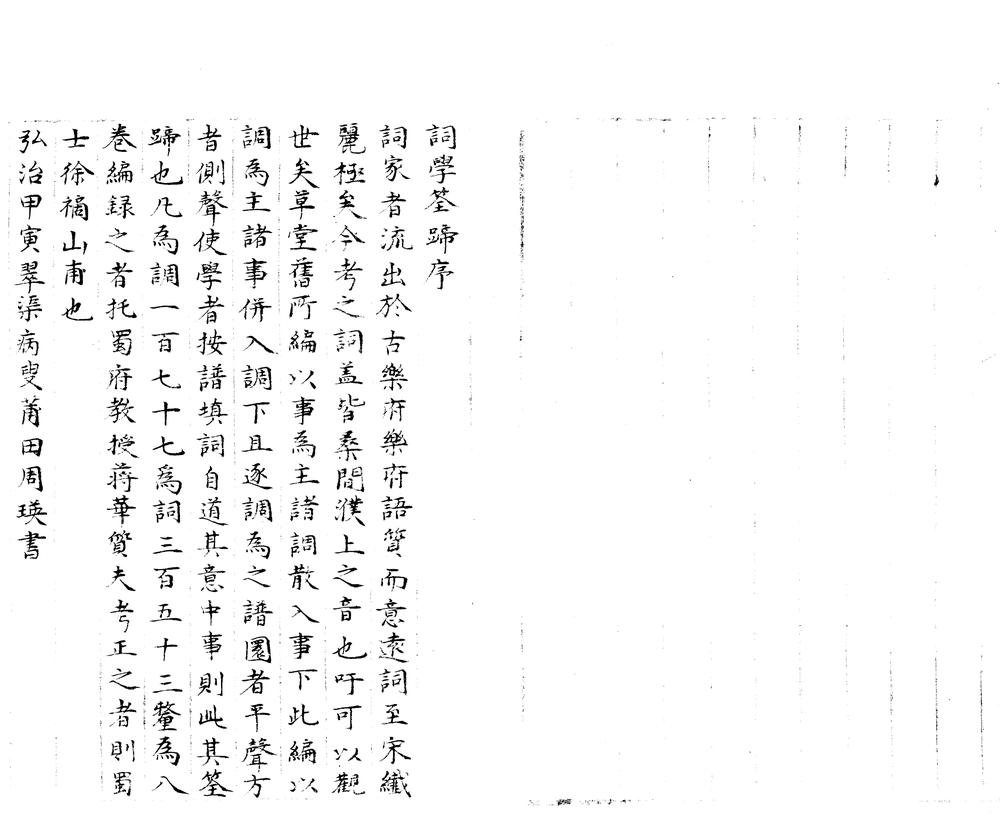 詞學筌蹄序
詞家者流出於古樂府樂府語質而意遠詞至宋纖
麗極矣今考之詞盖皆桑間濮上之音也吁可以觀
世矣草堂舊所編以事為主諸調散入事下此編以
調為主諸事併入調下且逐調為之譜圜者平聲方
者側聲使學者按譜填詞自道其意中事則此其筌
蹄也凡為調一百七十七爲詞三百五十三釐為八
卷編録之者托蜀府教授蒋華質夫考正之者則蜀
士徐橘山甫也
弘治甲寅翠渠病叟莆田周瑛書